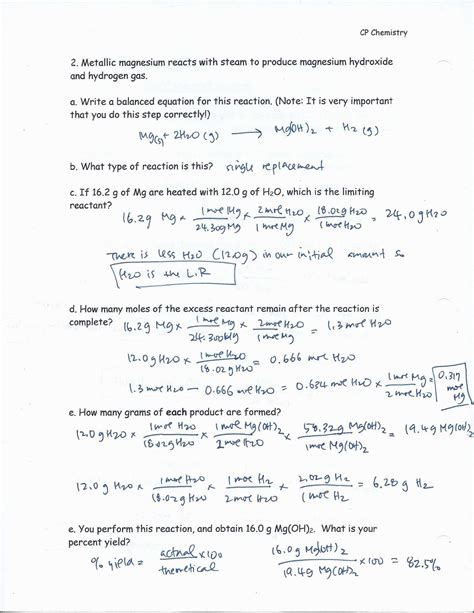 CP Chemistry
2. Metallic magnesium reacts with steam to produce magnesium hydroxide
and hydrogen gas.
a. Write a balanced equation for this reaction. (Note: It is very important
that you do this step correctly!)
Mg(s) + 2H2O (g) → Mg(OH)2 + H2 (g)
b. What type of reaction is this? single replacement
c. If 16.2 g of Mg are heated with 12.0 g of H2O, which is the limiting
reactant?
16.2g Mg × 1 mol Mg / 24.30g Mg × 2 mol H2O / 1 mol Mg × 18.02g H2O / 1 mol H2O = 24.0 g H2O
There is less H2O (12.0g) in our initial amount so
H2O is the L.R
d. How many moles of the excess reactant remain after the reaction is
complete? 16.2g Mg × 1 mol Mg / 24.300g Mg × 2 mol H2O / 1 mol Mg = 1.3 mol H2O
12.0 g H2O × 1 mol H2O / 18.02g H2O = 0.666 mol H2O
1.3 mol H2O - 0.666 mol H2O = 0.634 mol H2O × 1 mol Mg / 2 mol H2O = 0.317 mol Mg
e. How many grams of each product are formed?
12.0 g H2O × 1 mol H2O / 18.02g H2O × 1 mol Mg(OH)2 / 2 mol H2O × 58.32g Mg(OH)2 / 1 mol Mg(OH)2 = 19.4g Mg(OH)2
12.0 g H2O × 1 mol H2O / 18.02g H2O × 1 mol H2 / 2 mol H2O × 2.02g H2 / 1 mol H2 = 6.28 g H2
e. You perform this reaction, and obtain 16.0 g Mg(OH)2. What is your
percent yield?
% yield = actual / theoretical ×100
16.0 g Mg(OH)2 / 19.4g Mg(OH)2 ×100 = 82.5%